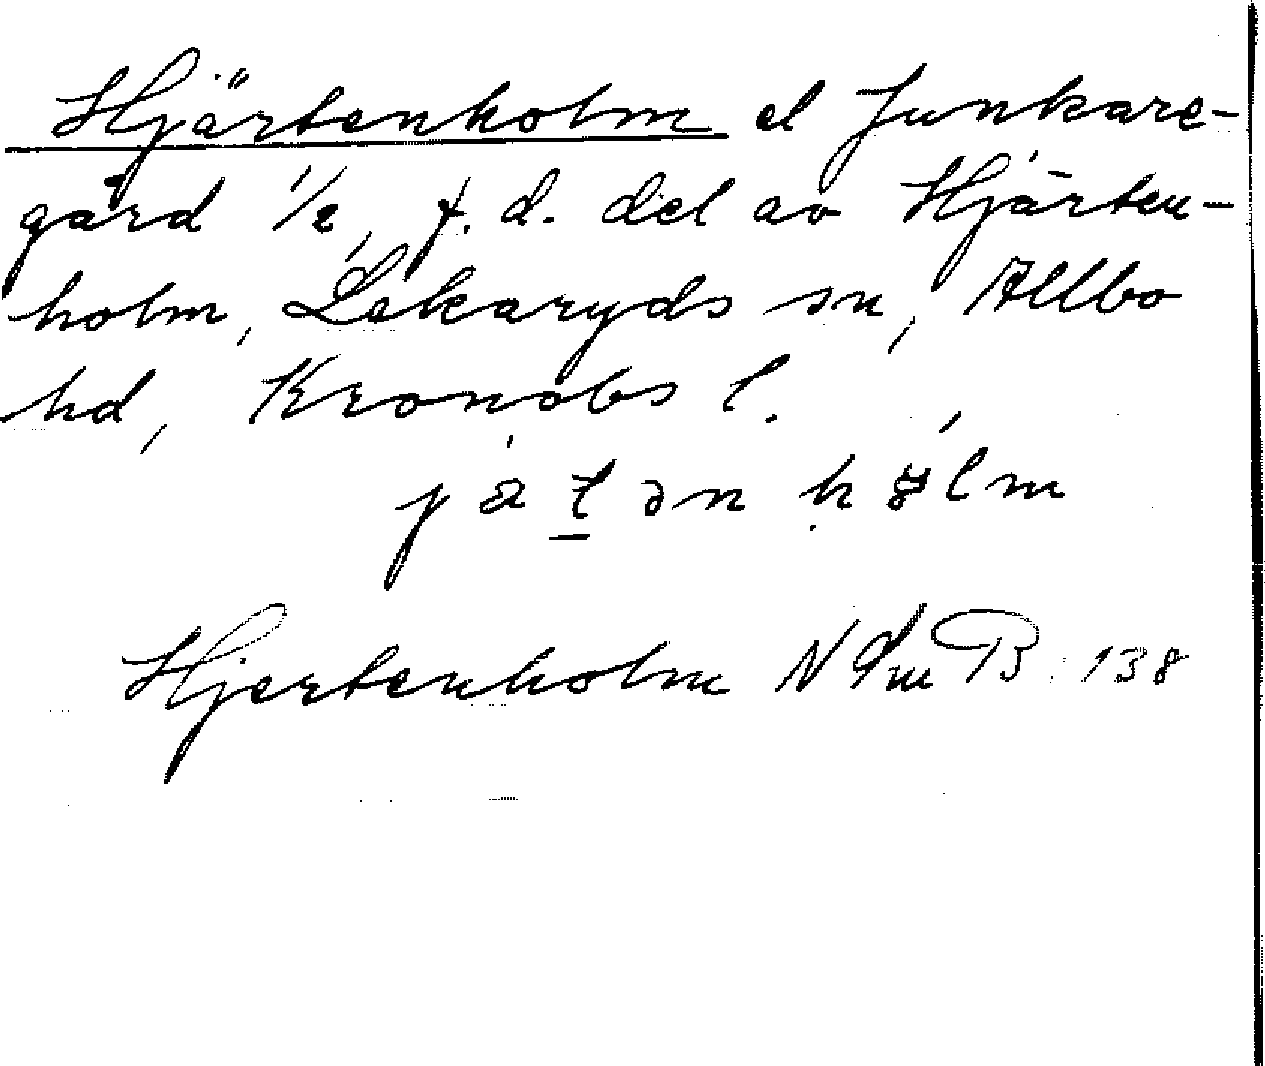 Hjärtenholm el Junkare-
gård 1/2, f. d. del av Hjärten-
holm, Lekaryds sn, Allbo
hd, Kronobs l.
Hjertenholm N B 138